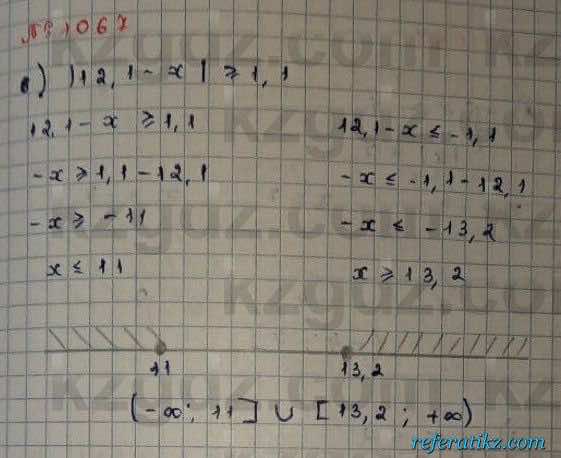 № 1067
в) |12,1 - x| ≥ 1,1
12,1 - x ≥ 1,1
12,1 - x ≤ -1,1
-x ≥ 1,1 - 12,1
-x ≤ -1,1 - 12,1
-x ≥ -11
-x ≤ -13,2
x ≤ 11
x ≥ 13,2
11
13,2
(-∞; 11] ∪ [13,2; +∞)
kzgdz.com
referatikz.com